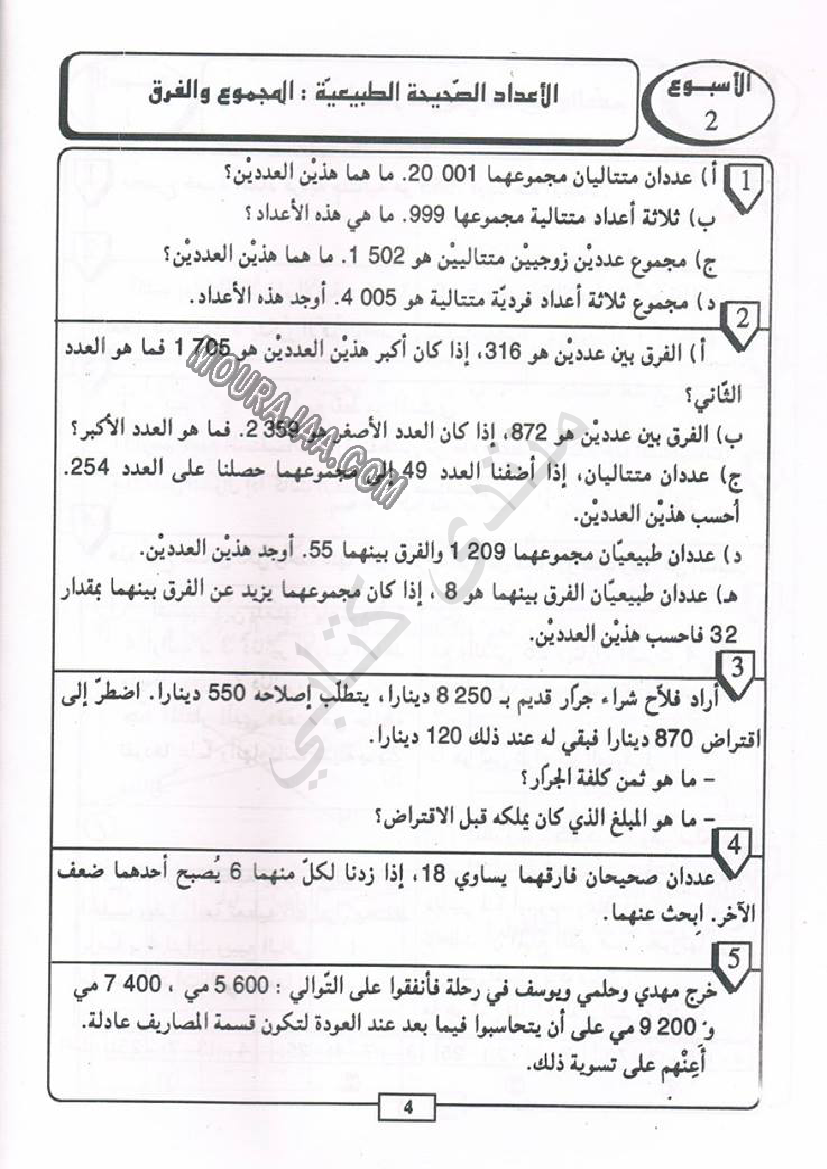 الأسبوع
2
الأعداد الصّحيحة الطبيعيّة : المجموع والفرق
1
أ) عددان متتاليان مجموعهما 001 20. ما هما هذيْن العدديْن؟
ب) ثلاثة أعداد متتالية مجموعها 999. ما هي هذه الأعداد؟
ج) مجموع عدديْن زوجييْن متتالييْن هو 502 1. ما هما هذيْن العدديْن؟
د) مجموع ثلاثة أعداد فرديّة متتالية هو 005 4. أوجد هذه الأعداد.
2
أ) الفرق بين عدديْن هو 316، إذا كان أكبر هذيْن العدديْن هو 705 1 فما هو العدد
الثّاني؟
ب) الفرق بين عدديْن هو 872، إذا كان العدد الأصغر هو 359 2. فما هو العدد الأكبر؟
ج) عددان متتاليان، إذا أضفنا العدد 49 إلى مجموعهما حصلنا على العدد 254.
أحسب هذيْن العدديْن.
د) عددان طبيعيّان مجموعهما 209 1 والفرق بينهما 55. أوجد هذيْن العدديْن.
هـ) عددان طبيعيّان الفرق بينهما هو 8 ، إذا كان مجموعهما يزيد عن الفرق بينهما بمقدار
32 فاحسب هذيْن العدديْن.
3
أراد فلاّح شراء جرّار قديم بـ 250 8 دينارا، يتطلّب إصلاحه 550 دينارا. اضطرّ إلى
اقتراض 870 دينارا فبقي له عند ذلك 120 دينارا.
– ما هو ثمن كلفة الجرّار؟
– ما هو المبلغ الذي كان يملكه قبل الاقتراض؟
4
عددان صحيحان فارقهما يساوي 18، إذا زدنا لكلّ منهما 6 يُصبح أحدهما ضعف
الآخر. ابحث عنهما.
5
خرج مهدي وحلمي ويوسف في رحلة فأنفقوا على التّوالي : 600 5 مي ، 400 7 مي
و 200 9 مي على أن يتحاسبوا فيما بعد عند العودة لتكون قسمة المصاريف عادلة.
أَعِنْهم على تسوية ذلك.
4
MOURAJAA.COM
منتدى كتابي